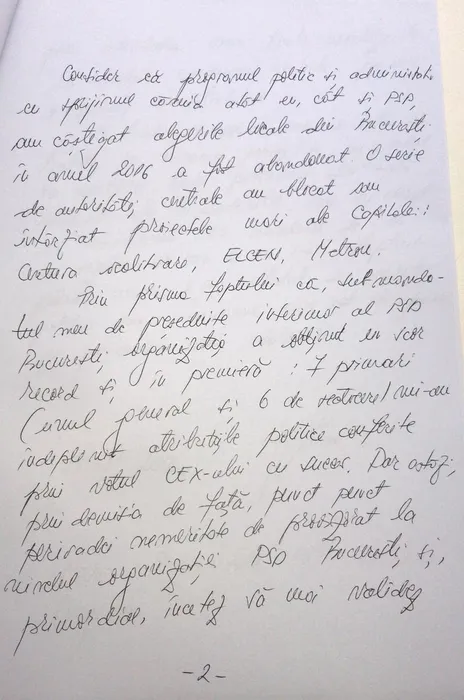 Consider că programul politic și administrativ
cu sprijinul căruia atât eu, cât și PSD,
am câștigat alegerile locale din București
în anul 2016 a fost abandonat. O serie
de autorități centrale au blocat sau
întârziat proiectele mari ale Capitalei:
Centura ocolitoare, ELCEN, Metrou.
Prin prisma faptului că, sub manda-
tul meu de președinte interimar al PSD
București, organizația a obținut un scor
record și, în premieră: 7 primari
(unul general și 6 de sectoare) mi-am
îndeplinit atribuțiile politice conferite
prin votul CEX-ului cu succes. Dar astăzi,
prin demisia de față, punct punct
perioadei nemeritate de provizorat la
nivelul organizației PSD București și,
primordial, încetez să mai validez
-2-